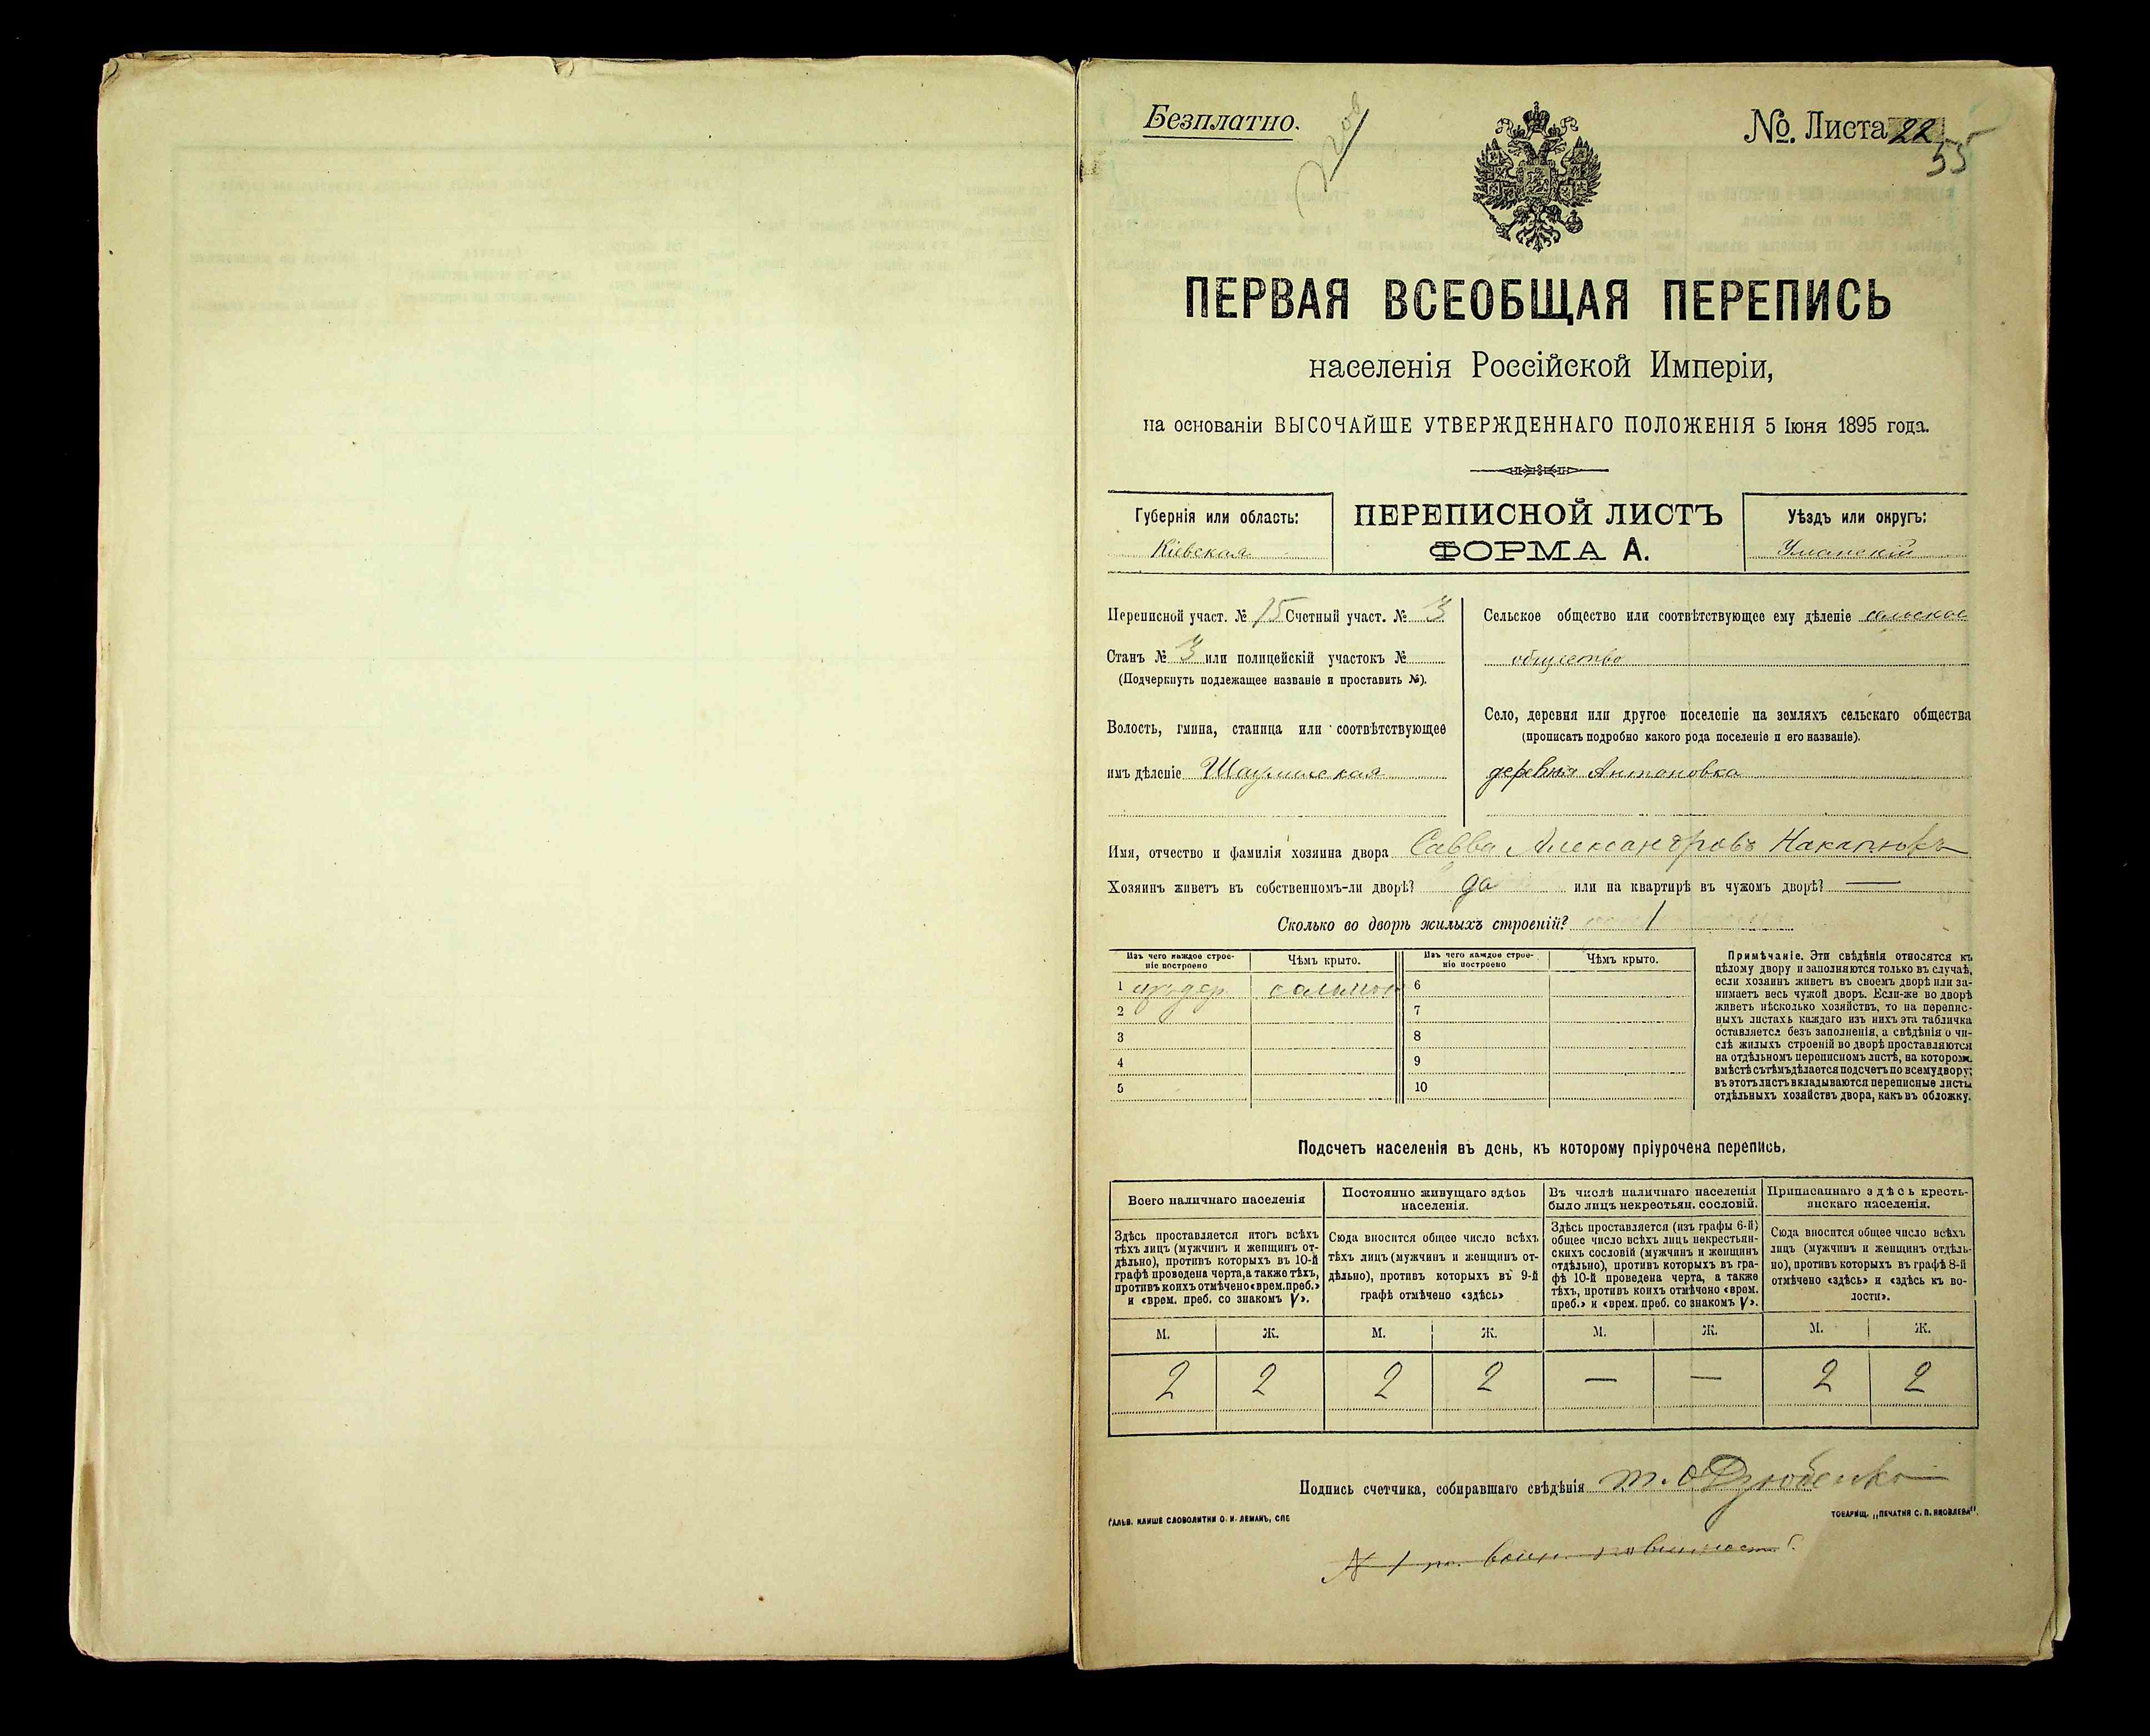 Безплатно.
№. Листа 22
55
ПЕРВАЯ ВСЕОБЩАЯ ПЕРЕПИСЬ
населенія Россійской Имперіи,
на основаніи ВЫСОЧАЙШЕ УТВЕРЖДЕННАГО ПОЛОЖЕНІЯ 5 Іюня 1895 года.
Губернія или область:
Кіевская
ПЕРЕПИСНОЙ ЛИСТЪ
ФОРМА А.
Уѣздъ или округъ:
Уманскій
Переписной участ. № 15 Счетный участ. № 3
Станъ № 3 или полицейскій участокъ №
(Подчеркнуть подлежащее названіе и проставить №).
Волость, гмина, станица или соотвѣтствующее
имъ дѣленіе
Сельское общество или соотвѣтствующее ему дѣленіе сельское
общество
Село, деревня или другое поселеніе на земляхъ сельскаго общества
(прописать подробно какого рода поселеніе и его названіе).
деревня Антоновка
Имя, отчество и фамилія хозяина двора Савва Александровъ
Хозяинъ живетъ въ собственномъ-ли дворѣ? да или на квартирѣ въ чужомъ дворѣ? —
Сколько во дворѣ жилыхъ строеній? 1
Изъ чего каждое строе-
ніе построено
Чѣмъ крыто.
1
2
3
4
5
Изъ чего каждое строе-
ніе построено
Чѣмъ крыто.
6
7
8
9
10
Примѣчаніе. Эти свѣдѣнія относятся къ
цѣлому двору и заполняются только въ случаѣ,
если хозяинъ живетъ въ своемъ дворѣ или за-
нимаетъ весь чужой дворъ. Если-же во дворѣ
живетъ нѣсколько хозяйствъ, то на перепис-
ныхъ листахъ каждаго изъ нихъ эта табличка
оставляется безъ заполненія, а свѣдѣнія о чи-
слѣ жилыхъ строеній во дворѣ проставляются
на отдѣльномъ переписномъ листѣ, на которомъ
вмѣстѣ съ тѣмъ дѣлается подсчетъ по всему двору;
въ этотъ листъ вкладываются переписные листы
отдѣльныхъ хозяйствъ двора, какъ въ обложку.
Подсчетъ населенія въ день, къ которому пріурочена перепись.
Всего наличнаго населенія
Здѣсь проставляется итогъ всѣхъ
тѣхъ лицъ (мужчинъ и женщинъ от-
дѣльно), противъ которыхъ въ 10-й
графѣ проведена черта, а также тѣхъ,
противъ коихъ отмѣчено «врем. преб.»
и «врем. преб. со знакомъ V».
Постоянно живущаго здѣсь
населенія.
Сюда вносится общее число всѣхъ
тѣхъ лицъ (мужчинъ и женщинъ от-
дѣльно), противъ которыхъ въ 9-й
графѣ отмѣчено «здѣсь»
Въ числѣ наличнаго населенія
было лицъ некрестьян. сословій.
Здѣсь проставляется (изъ графы 6-й)
общее число всѣхъ лицъ некрестьян-
скихъ сословій (мужчинъ и женщинъ
отдѣльно), противъ которыхъ въ гра-
фѣ 10-й проведена черта, а также
тѣхъ, противъ коихъ отмѣчено «врем.
преб.» и «врем. преб. со знакомъ V».
Приписаннаго здѣсь кресть-
янскаго населенія.
Сюда вносится общее число всѣхъ
лицъ (мужчинъ и женщинъ отдѣль-
но), противъ которыхъ въ графѣ 8-й
отмѣчено «здѣсь» и «здѣсь къ во-
лости».
М. Ж. М. Ж. М. Ж. М. Ж.
2 2 2 2 — — 2 2
Подпись счетчика, собиравшаго свѣдѣнія Дзюбенко
ГАЛЬВ. КЛИШЕ СЛОВОЛИТНИ О. И. ЛЕМАНЪ, СПБ
ТОВАРИЩ. „ПЕЧАТНЯ С. П. ЯКОВЛЕВА".
№ 1 по воин. повинности